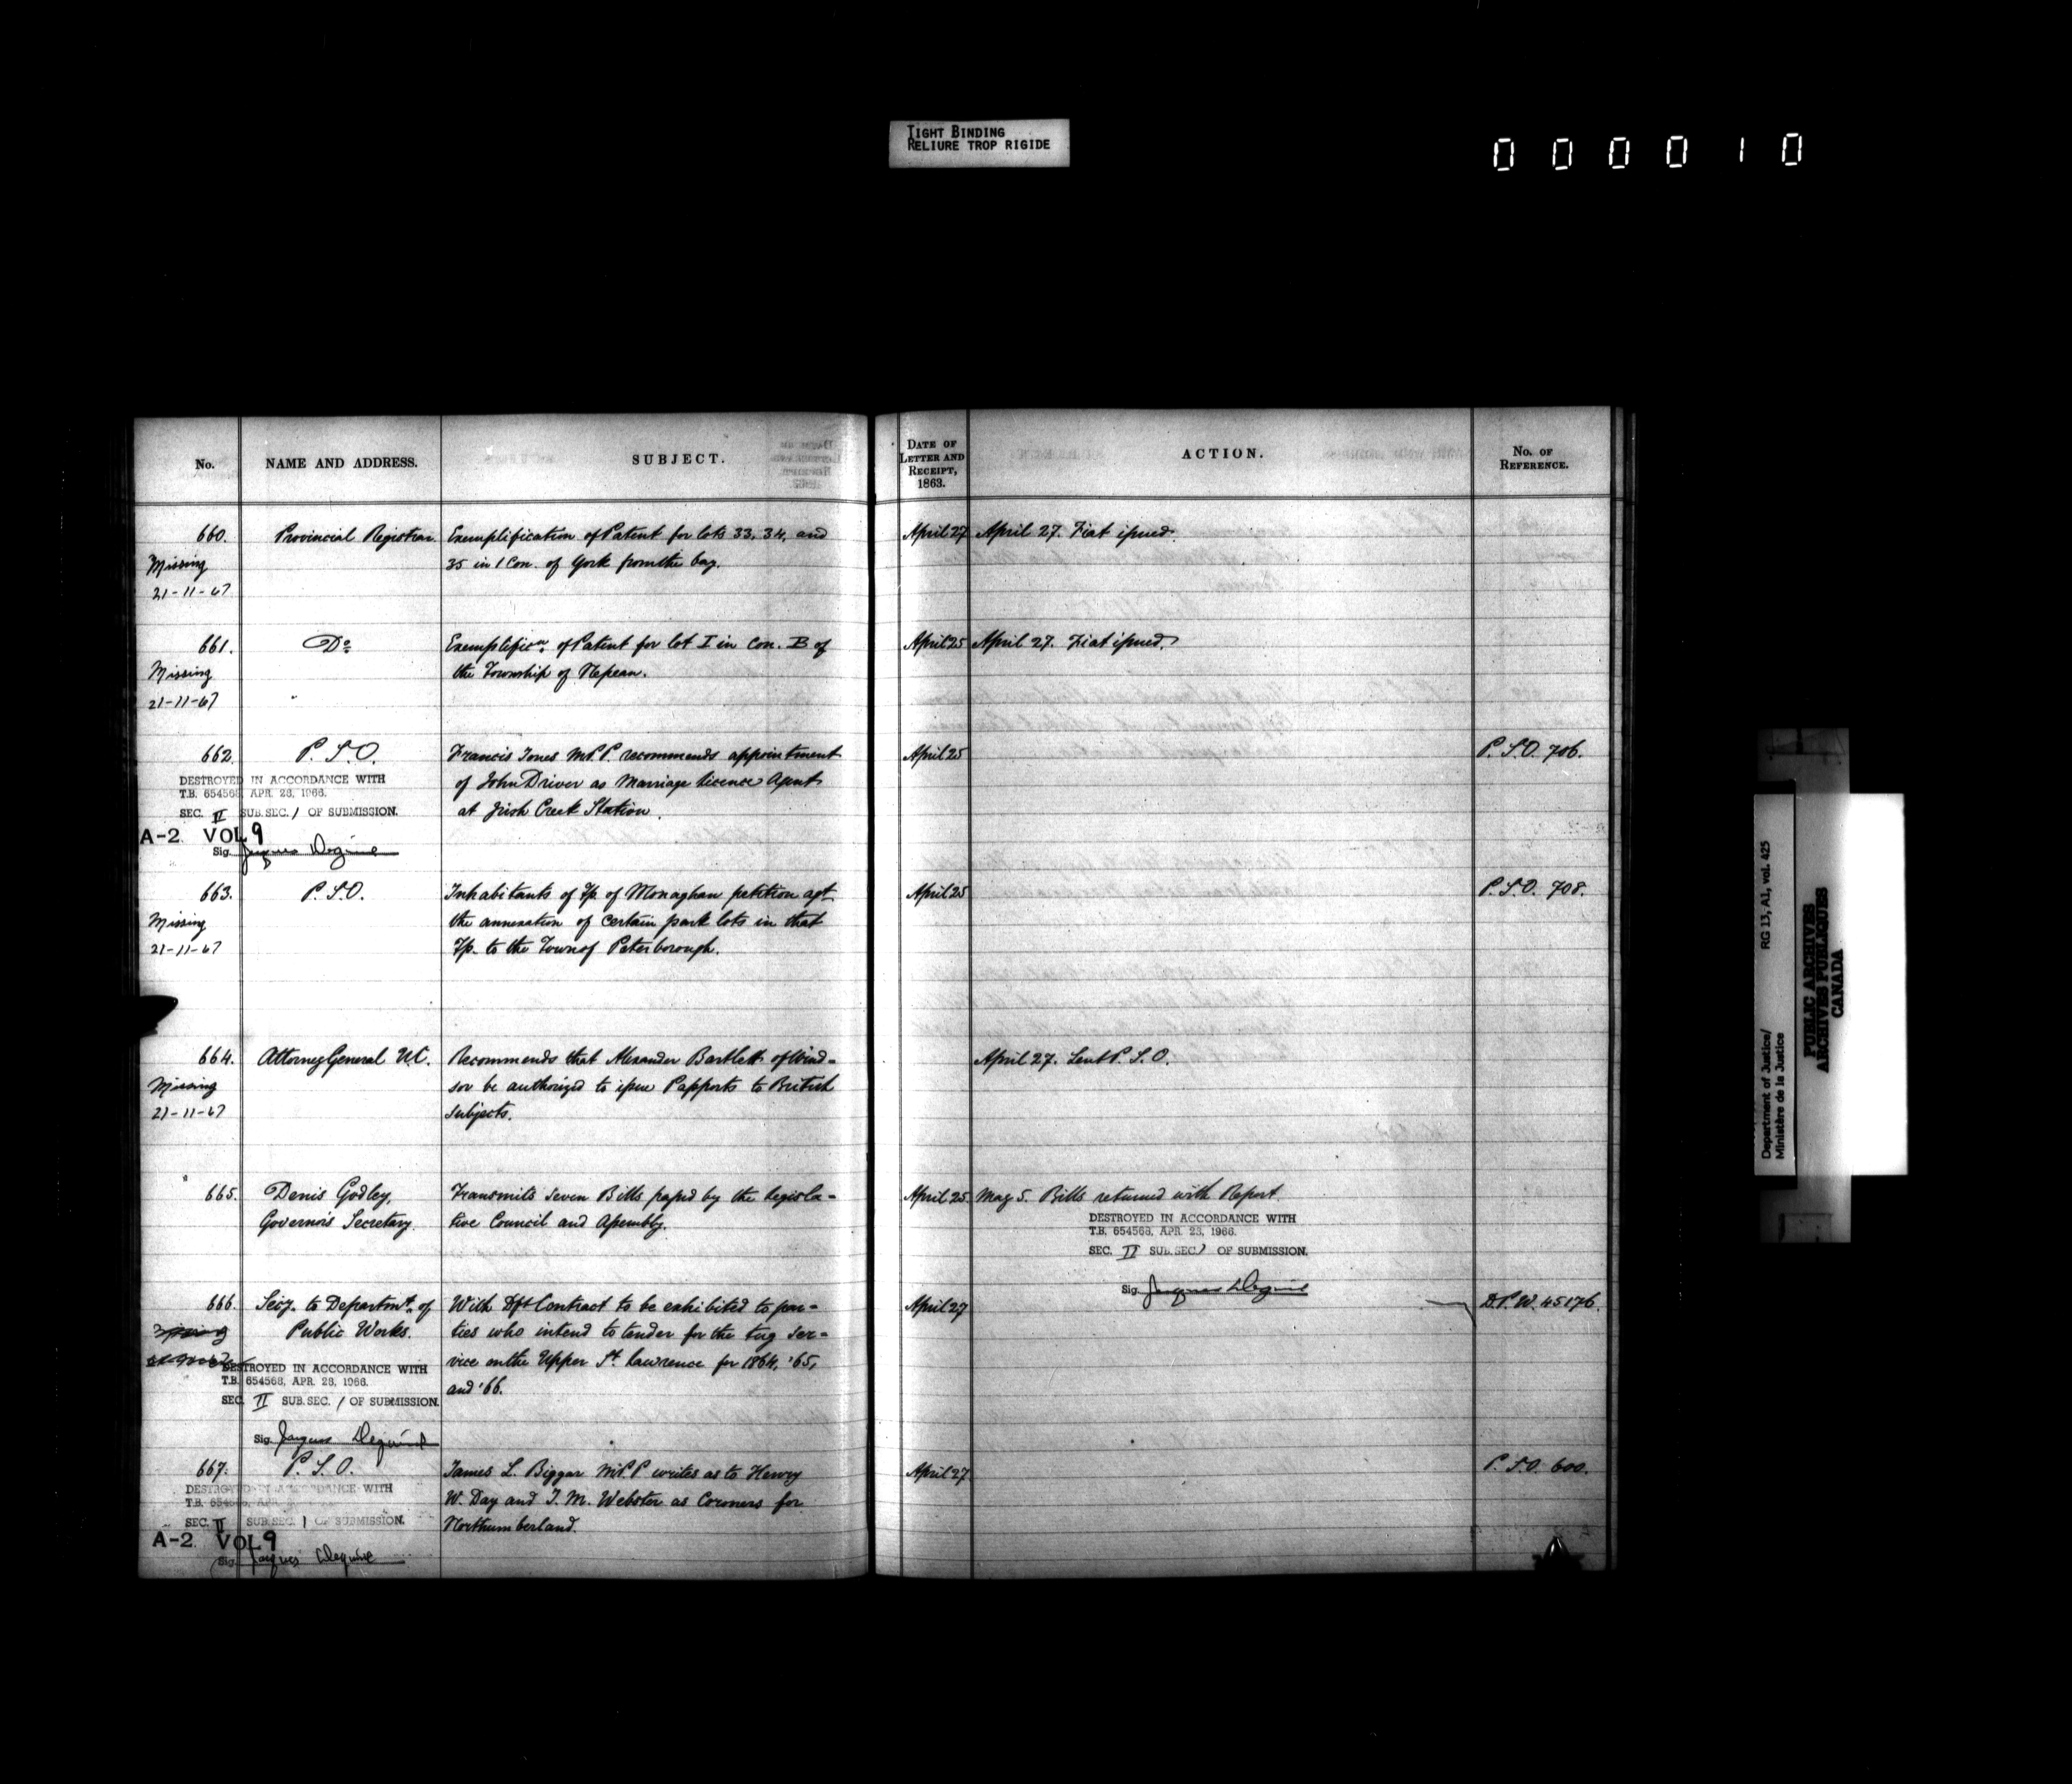 TIGHT BINDING
RELIURE TROP RIGIDE
000010
No. NAME AND ADDRESS. SUBJECT. DATE OF LETTER AND RECEIPT, 1863. ACTION. No. OF REFERENCE.
660. Provincial Registrar Exemplification of Patent for lots 33, 34, and April 27 April 27. Fiat issued.
Missing 35 in 1 Con. of York from the bay.
21-11-67
661. Do Exemplificn. of Patent for lot I in Con. B of April 25 April 27. Fiat issued.
Missing the Township of Nepean.
21-11-67
662. P. S. O. Francis Jones M.P.P. recommends appointment April 25 P. S. O. 706.
DESTROYED IN ACCORDANCE WITH of John Driver as Marriage licence Agent
T.B. 654568, APR. 28, 1966. at Irish Creek Station.
SEC. II SUB.SEC. 1 OF SUBMISSION.
A-2. VOL 9
Sig. Jacques
663. P. S. O. Inhabitants of Tp. of Monaghan petition agt. April 25 P. S. O. 708.
Missing the annexation of certain park lots in that
21-11-67 Tp. to the Town of Peterborough.
664. Attorney General U.C. Recommends that Alexander Bartlett of Wind- April 27. Sent P. S. O.
Missing sor be authorized to issue Passports to British
21-11-67 subjects.
665. Denis Godley, Transmits seven Bills passed by the Legisla- April 25. May 5. Bills returned with Report.
Governor's Secretary. tive Council and Assembly.
DESTROYED IN ACCORDANCE WITH
T.B. 654568, APR. 28, 1966.
SEC. II SUB.SEC. 1 OF SUBMISSION.
Sig. Jacques
666. Secy. to Departmt. of With Dft Contract to be exhibited to par- April 27 D.P.W. 45176.
Missing Public Works. ties who intend to tender for the tug ser-
vice on the Upper St. Lawrence for 1864, '65,
DESTROYED IN ACCORDANCE WITH and '66.
T.B. 654568, APR. 28, 1966.
SEC. II SUB.SEC. 1 OF SUBMISSION.
Sig. Jacques
667. P. S. O. James L. Biggar M.P.P writes as to Henry April 27 P. S. O. 600.
DESTROYED IN ACCORDANCE WITH W. Day and J. M. Webster as Coroners for
T.B. 654568, APR. Northumberland.
SEC. II SUB.SEC. 1 OF SUBMISSION.
A-2. VOL 9
Sig. Jacques
Department of Justice/ RG 13, A1, vol. 425
Ministère de la Justice
PUBLIC ARCHIVES
ARCHIVES PUBLIQUES
CANADA